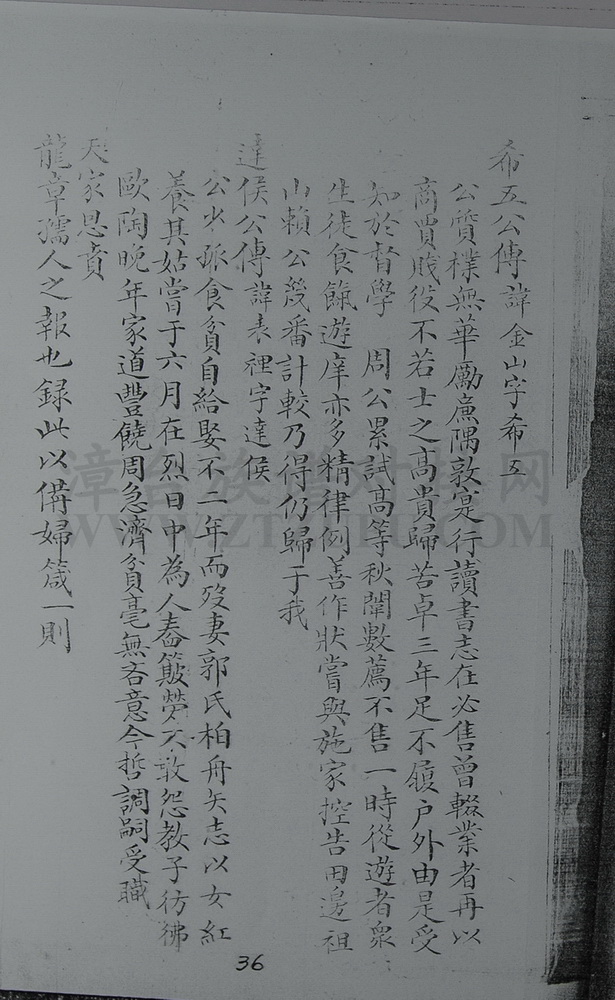 希五公傳 諱金山字希五
公質樸無華勵廉隅敦寔行讀書志在必售曾輟業者再以
商賈賤役不若士之高貴歸苦卓三年足不履户外由是受
知於督學 周公累試高等秋闈數薦不售一時從遊者衆
生徒食餼遊庠亦多精律例善作狀嘗與施家控告田邊祖
山賴公幾番計較乃得仍歸于我
達侯公傳 諱表裡字達侯
公少孤食貧自給娶不二年而歿妻郭氏柏舟矢志以女紅
養其姑嘗于六月在烈日中為人舂簸勞不敢怨教子彷彿
歐陶晚年家道豐饒周急濟貧毫無吝意今哲調嗣受職
天家恩賁
龍章孺人之報也録此以備婦箴一則
36
WWW.ZTZUPU.COM